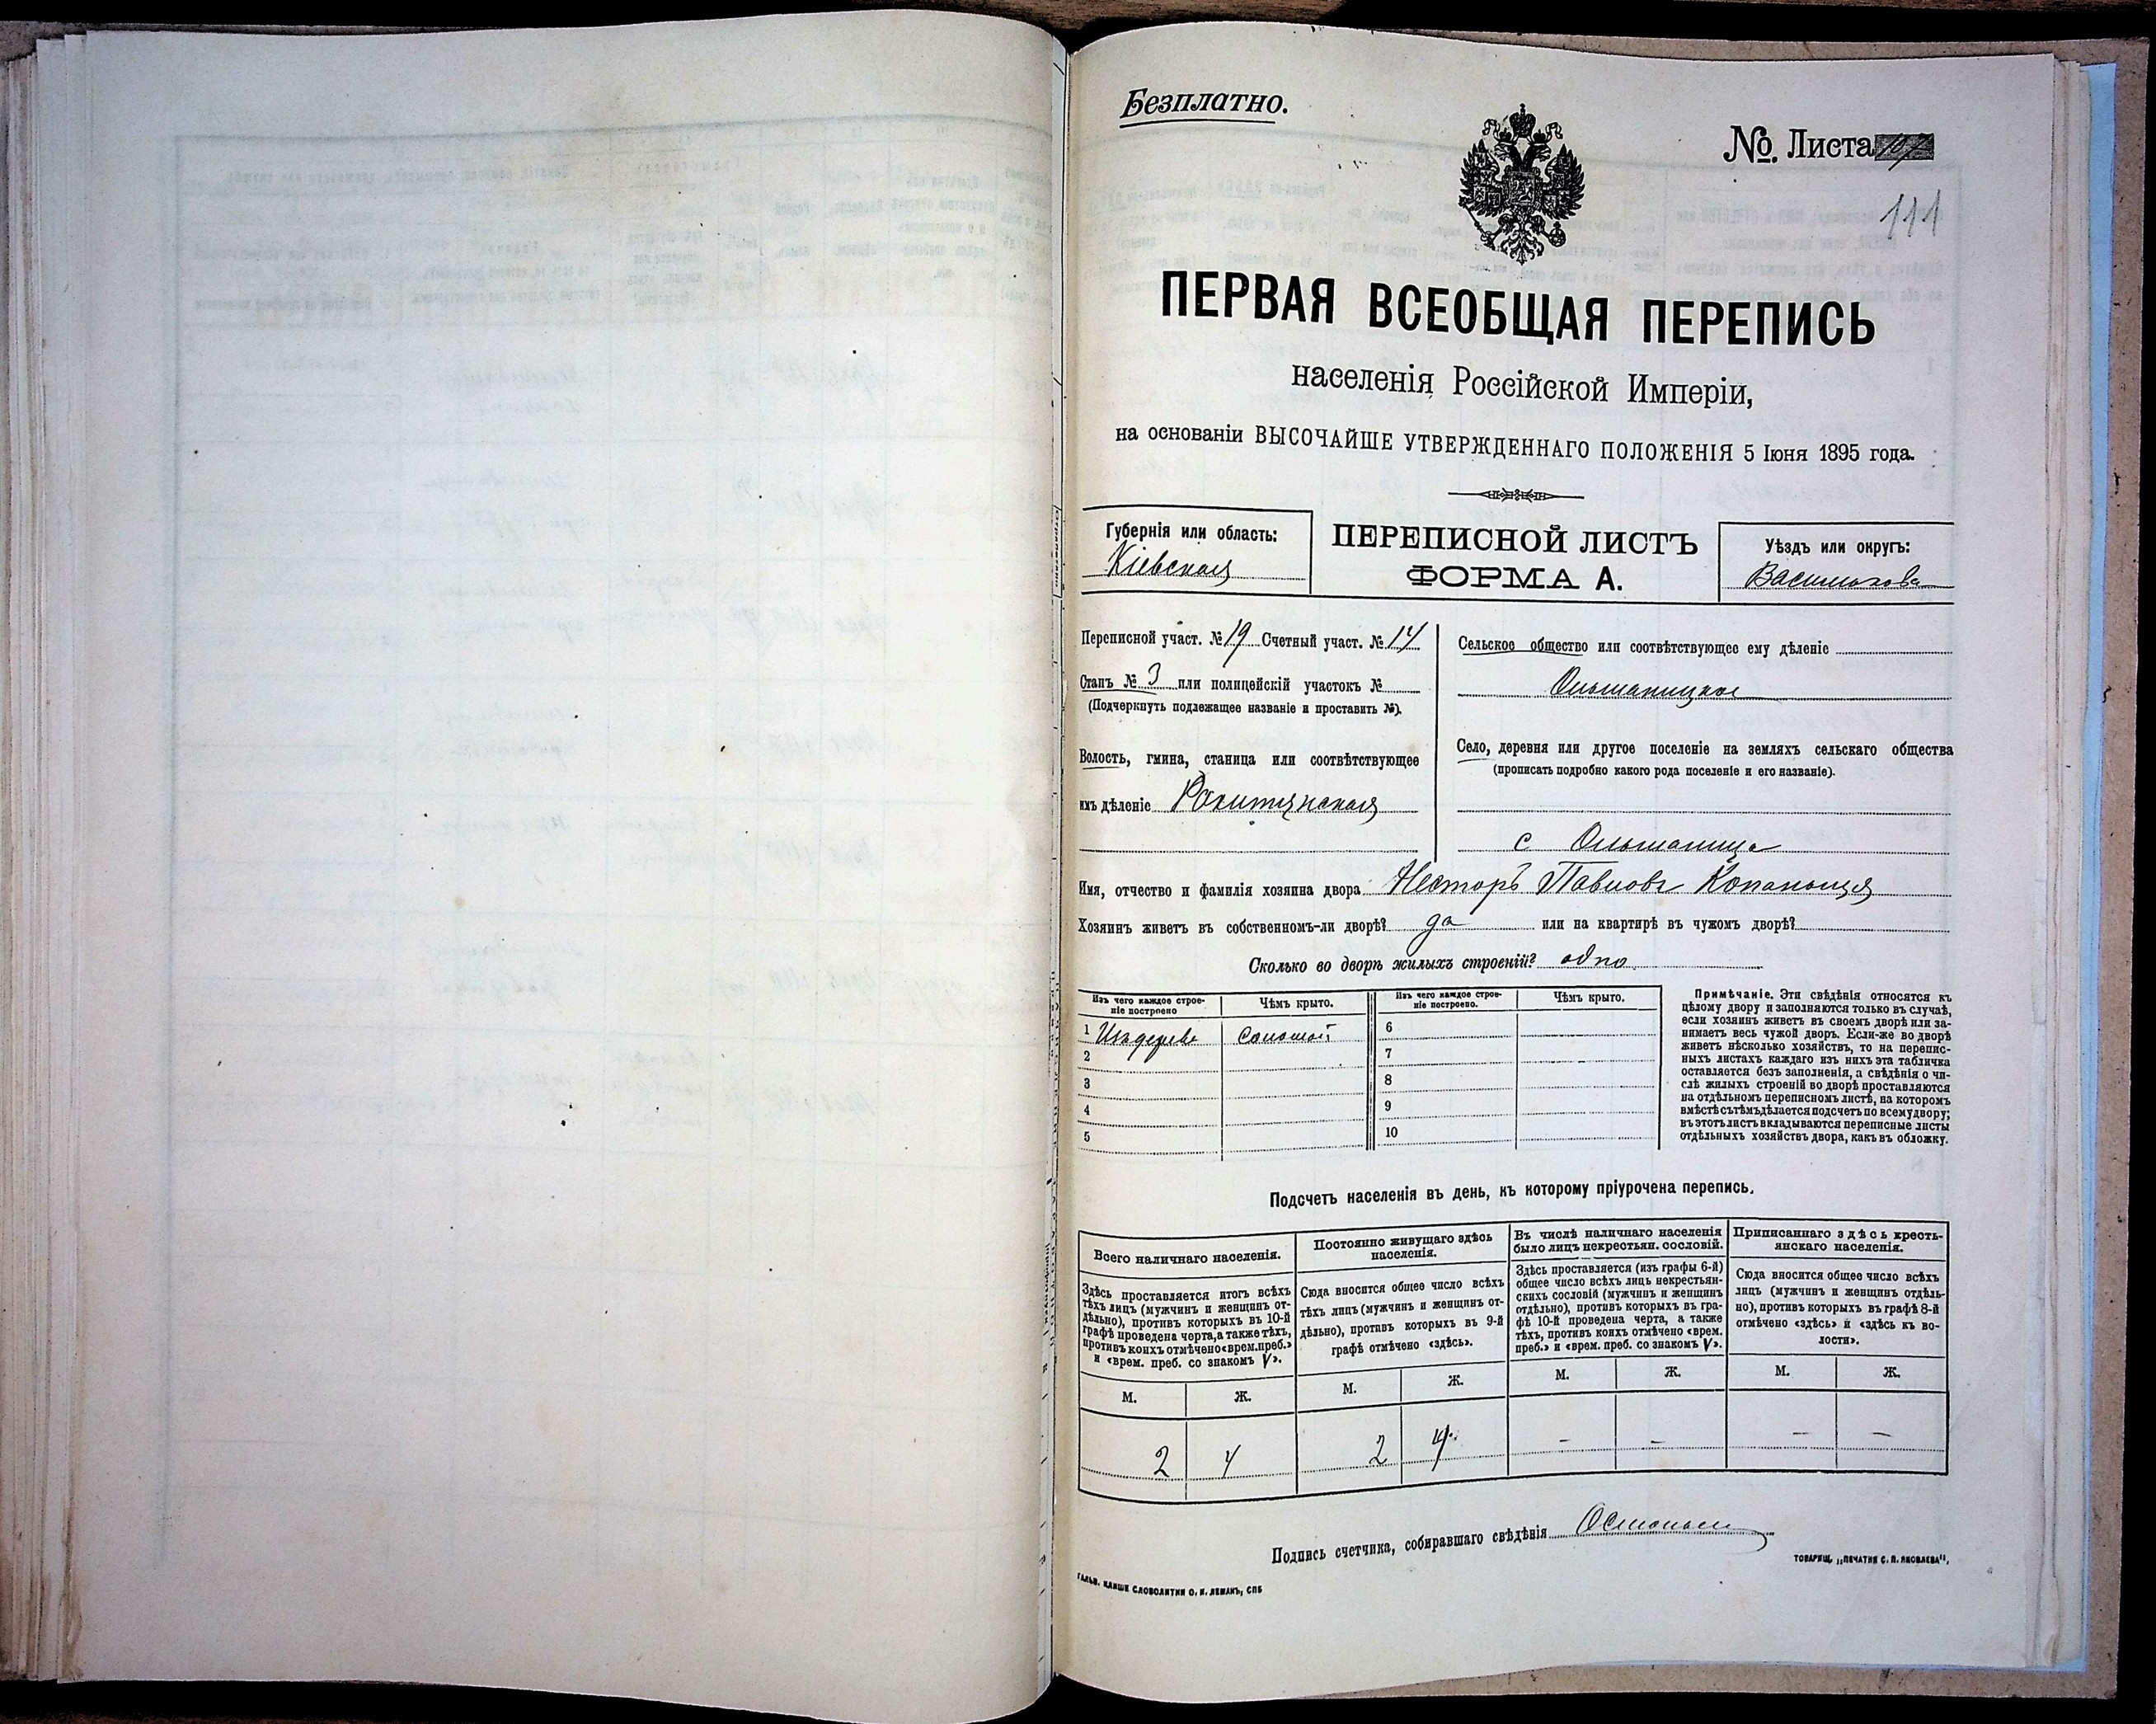 Безплатно.
№. Листа 107
111
ПЕРВАЯ ВСЕОБЩАЯ ПЕРЕПИСЬ
населенія Россійской Имперіи,
на основаніи ВЫСОЧАЙШЕ УТВЕРЖДЕННАГО ПОЛОЖЕНІЯ 5 Іюня 1895 года.
Губернія или область:
Кіевская
ПЕРЕПИСНОЙ ЛИСТЪ
ФОРМА А.
Уѣздъ или округъ:
Васильков
Переписной участ. № 19 Счетный участ. № 14
Станъ № 3 или полицейскій участокъ №
(Подчеркнуть подлежащее названіе и проставить №).
Волость, гмина, станица или соотвѣтствующее
имъ дѣленіе Рокитянская
Сельское общество или соотвѣтствующее ему дѣленіе
Ольшаницкое
Село, деревня или другое поселеніе на земляхъ сельскаго общества
(прописать подробно какого рода поселеніе и его названіе).
с Ольшаница
Имя, отчество и фамилія хозяина двора Несторъ Павловъ
Хозяинъ живетъ въ собственномъ-ли дворѣ? да или на квартирѣ въ чужомъ дворѣ?
Сколько во дворѣ жилыхъ строеній? одно
Изъ чего каждое строе-
ніе построено
Чѣмъ крыто.
Изъ чего каждое строе-
ніе построено.
Чѣмъ крыто.
1 Изъ дерева соломой
2
3
4
5
6
7
8
9
10
Примѣчаніе. Эти свѣдѣнія относятся къ
цѣлому двору и заполняются только въ случаѣ,
если хозяинъ живетъ въ своемъ дворѣ или за-
нимаетъ весь чужой дворъ. Если-же во дворѣ
живетъ нѣсколько хозяйствъ, то на перепис-
ныхъ листахъ каждаго изъ нихъ эта табличка
оставляется безъ заполненія, а свѣдѣнія о чи-
слѣ жилыхъ строеній во дворѣ проставляются
на отдѣльномъ переписномъ листѣ, на которомъ
вмѣстѣ съ тѣмъ дѣлается подсчетъ по всему двору;
въ этотъ листъ вкладываются переписные листы
отдѣльныхъ хозяйствъ двора, какъ въ обложку.
Подсчетъ населенія въ день, къ которому пріурочена перепись.
Всего наличнаго населенія.
Здѣсь проставляется итогъ всѣхъ
тѣхъ лицъ (мужчинъ и женщинъ от-
дѣльно), противъ которыхъ въ 10-й
графѣ проведена черта, а также тѣхъ,
противъ коихъ отмѣчено «врем. преб.»
и «врем. преб. со знакомъ V».
М. Ж.
2 4
Постоянно живущаго здѣсь
населенія.
Сюда вносится общее число всѣхъ
тѣхъ лицъ (мужчинъ и женщинъ от-
дѣльно), противъ которыхъ въ 9-й
графѣ отмѣчено «здѣсь».
М. Ж.
2 4
Въ числѣ наличнаго населенія
было лицъ некрестьян. сословій.
Здѣсь проставляется (изъ графы 6-й)
общее число всѣхъ лицъ некрестьян-
скихъ сословій (мужчинъ и женщинъ
отдѣльно), противъ которыхъ въ гра-
фѣ 10-й проведена черта, а также
тѣхъ, противъ коихъ отмѣчено «врем.
преб.» и «врем. преб. со знакомъ V».
М. Ж.
– –
Приписаннаго здѣсь кресть-
янскаго населенія.
Сюда вносится общее число всѣхъ
лицъ (мужчинъ и женщинъ отдѣль-
но), противъ которыхъ въ графѣ 8-й
отмѣчено «здѣсь» и «здѣсь къ во-
лости».
М. Ж.
– –
Подпись счетчика, собиравшаго свѣдѣнія
ГАЛЬВ. КЛИШЕ СЛОВОЛИТНИ О. И. ЛЕМАНЪ, СПБ
ТОВАРИЩ. „ПЕЧАТНЯ С. П. ЯКОВЛЕВА",